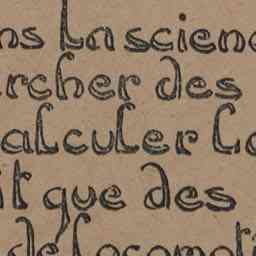 ns la scien
rcher des
alculer l
it que des
de locomot